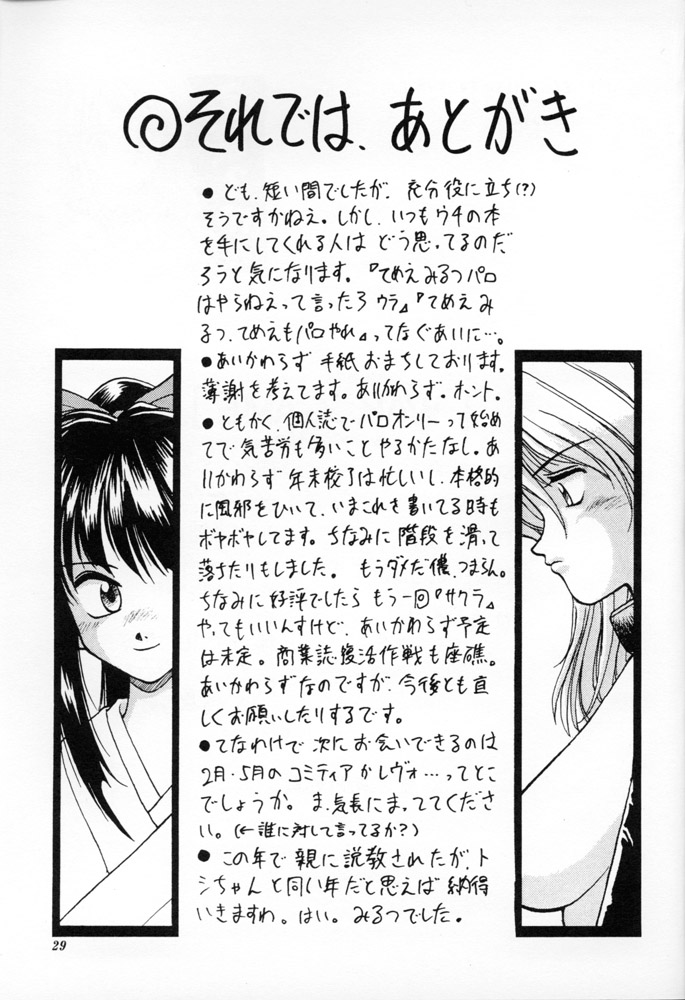 ◎それでは、あとがき
●ども、短い間でしたが、充分役に立ち(?)
そうですかねえ。しかし、いつもウチの本
を手にしてくれる人は どう思ってるのだ
ろうと気になります。『てめえみるつパロ
はやらねえって言ったろ ウラ』『てめえ み
るつ、てめえもパロやれ』ってなぐあいに…。
●あいかわらず 手紙おまちしております。
薄謝を考えてます。あいかわらず。ホント。
●ともかく、個人誌でパロオンリーって始め
てで気苦労も多いことやるかたなし。あ
いかわらず 年末校了は忙しいし、本格的
に風邪をひいて、いまこれを書いてる時も
ボヤボヤしてます。ちなみに 階段を滑って
落ちたりもしました。 もうダメだ儂、つまらん。
ちなみに好評でしたら もう一回『サクラ』
やってもいいんすけど、あいかわらず予定
は未定。商業誌復活作戦も座礁。
あいかわらずなのですが、今後とも宜
しくお願いしたりするです。
●てなわけで 次に お会いできるのは
2月・5月のコミティアかレヴォ…ってとこ
でしょうか。ま、気長にまっててくださ
い。(←誰に対して言ってるか?)
● この年で 親に説教されたが、ト
シちゃんと同い年だと思えば 納得
いきますわ。はい。みるつでした。
29